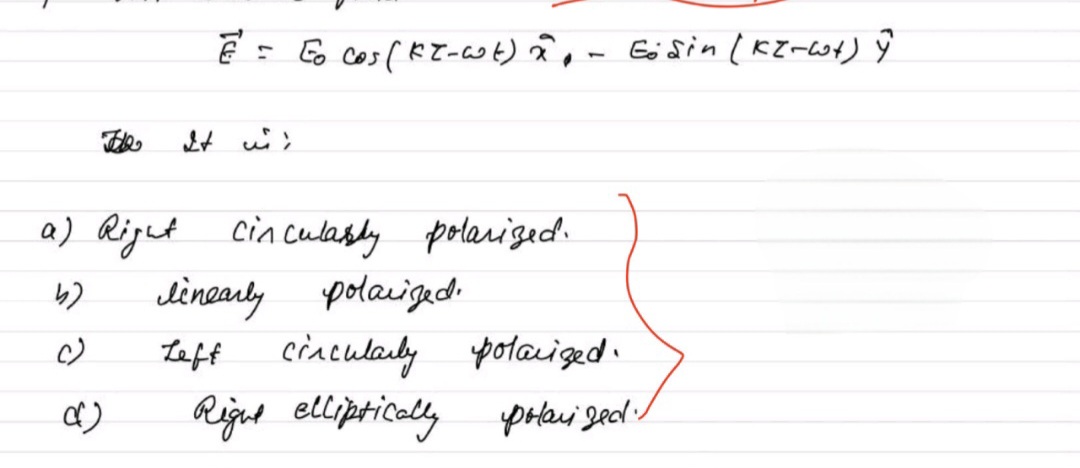 E⃗ = E₀ cos(kz-ωt) x̂, - E₀ sin (kz-ωt) ŷ
It is:
a) Right circularly polarized.
b) linearly polarized.
c) Left circularly polarized.
d) Right elliptically polarized.